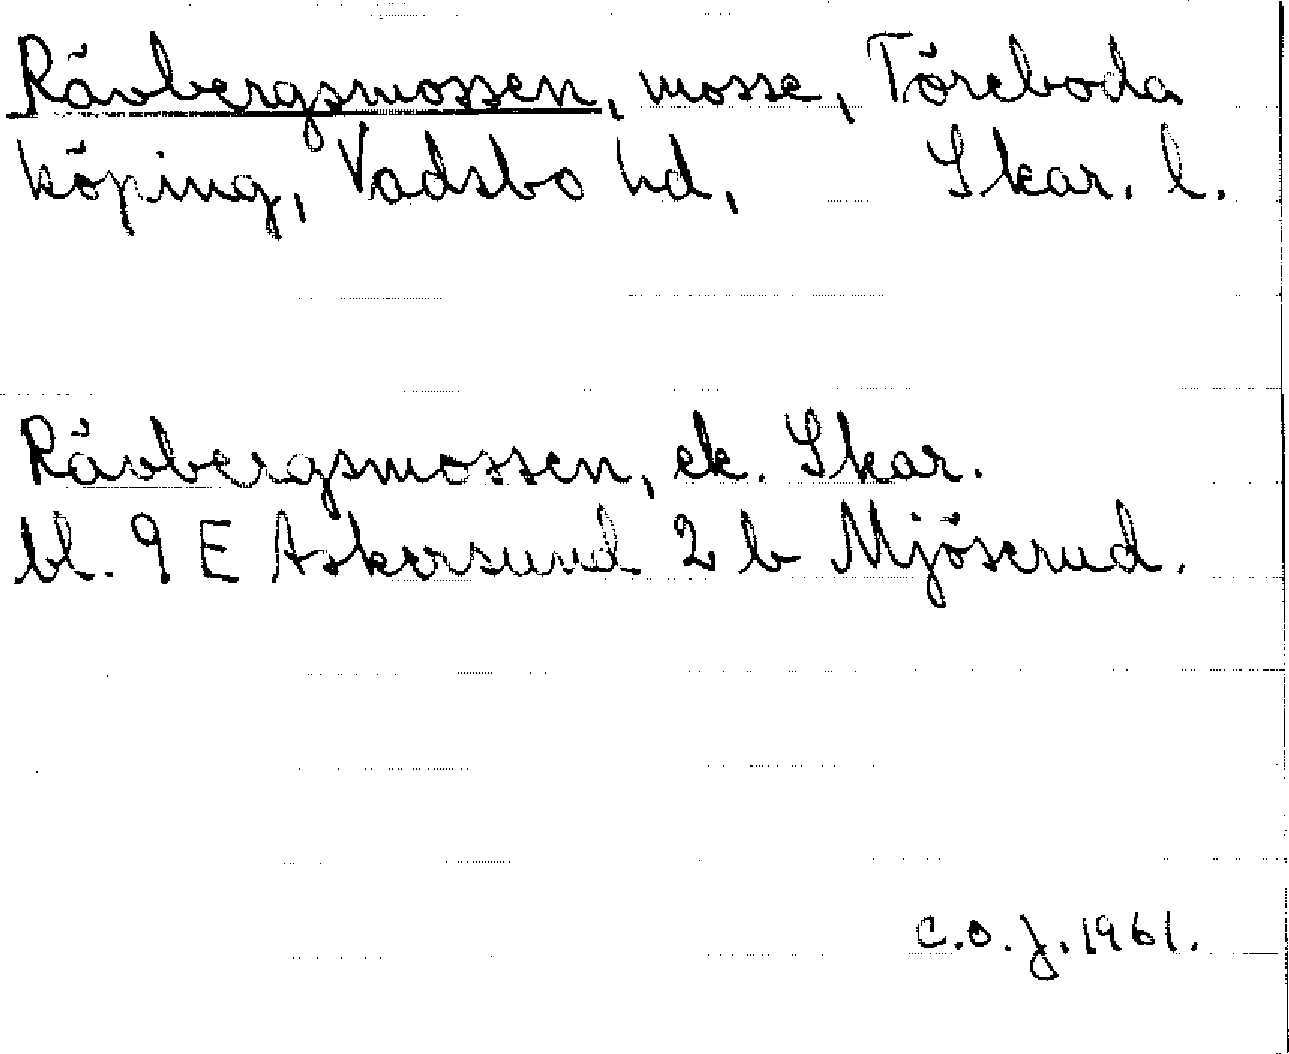 Rävbergsmossen, mosse, Töreboda
köping, Vadsbo hd, Skar. l.
Rävbergsmossen, ek. Skar.
bl. 9 E Askersund 2 b Mjöserud.
C.O.J. 1961.